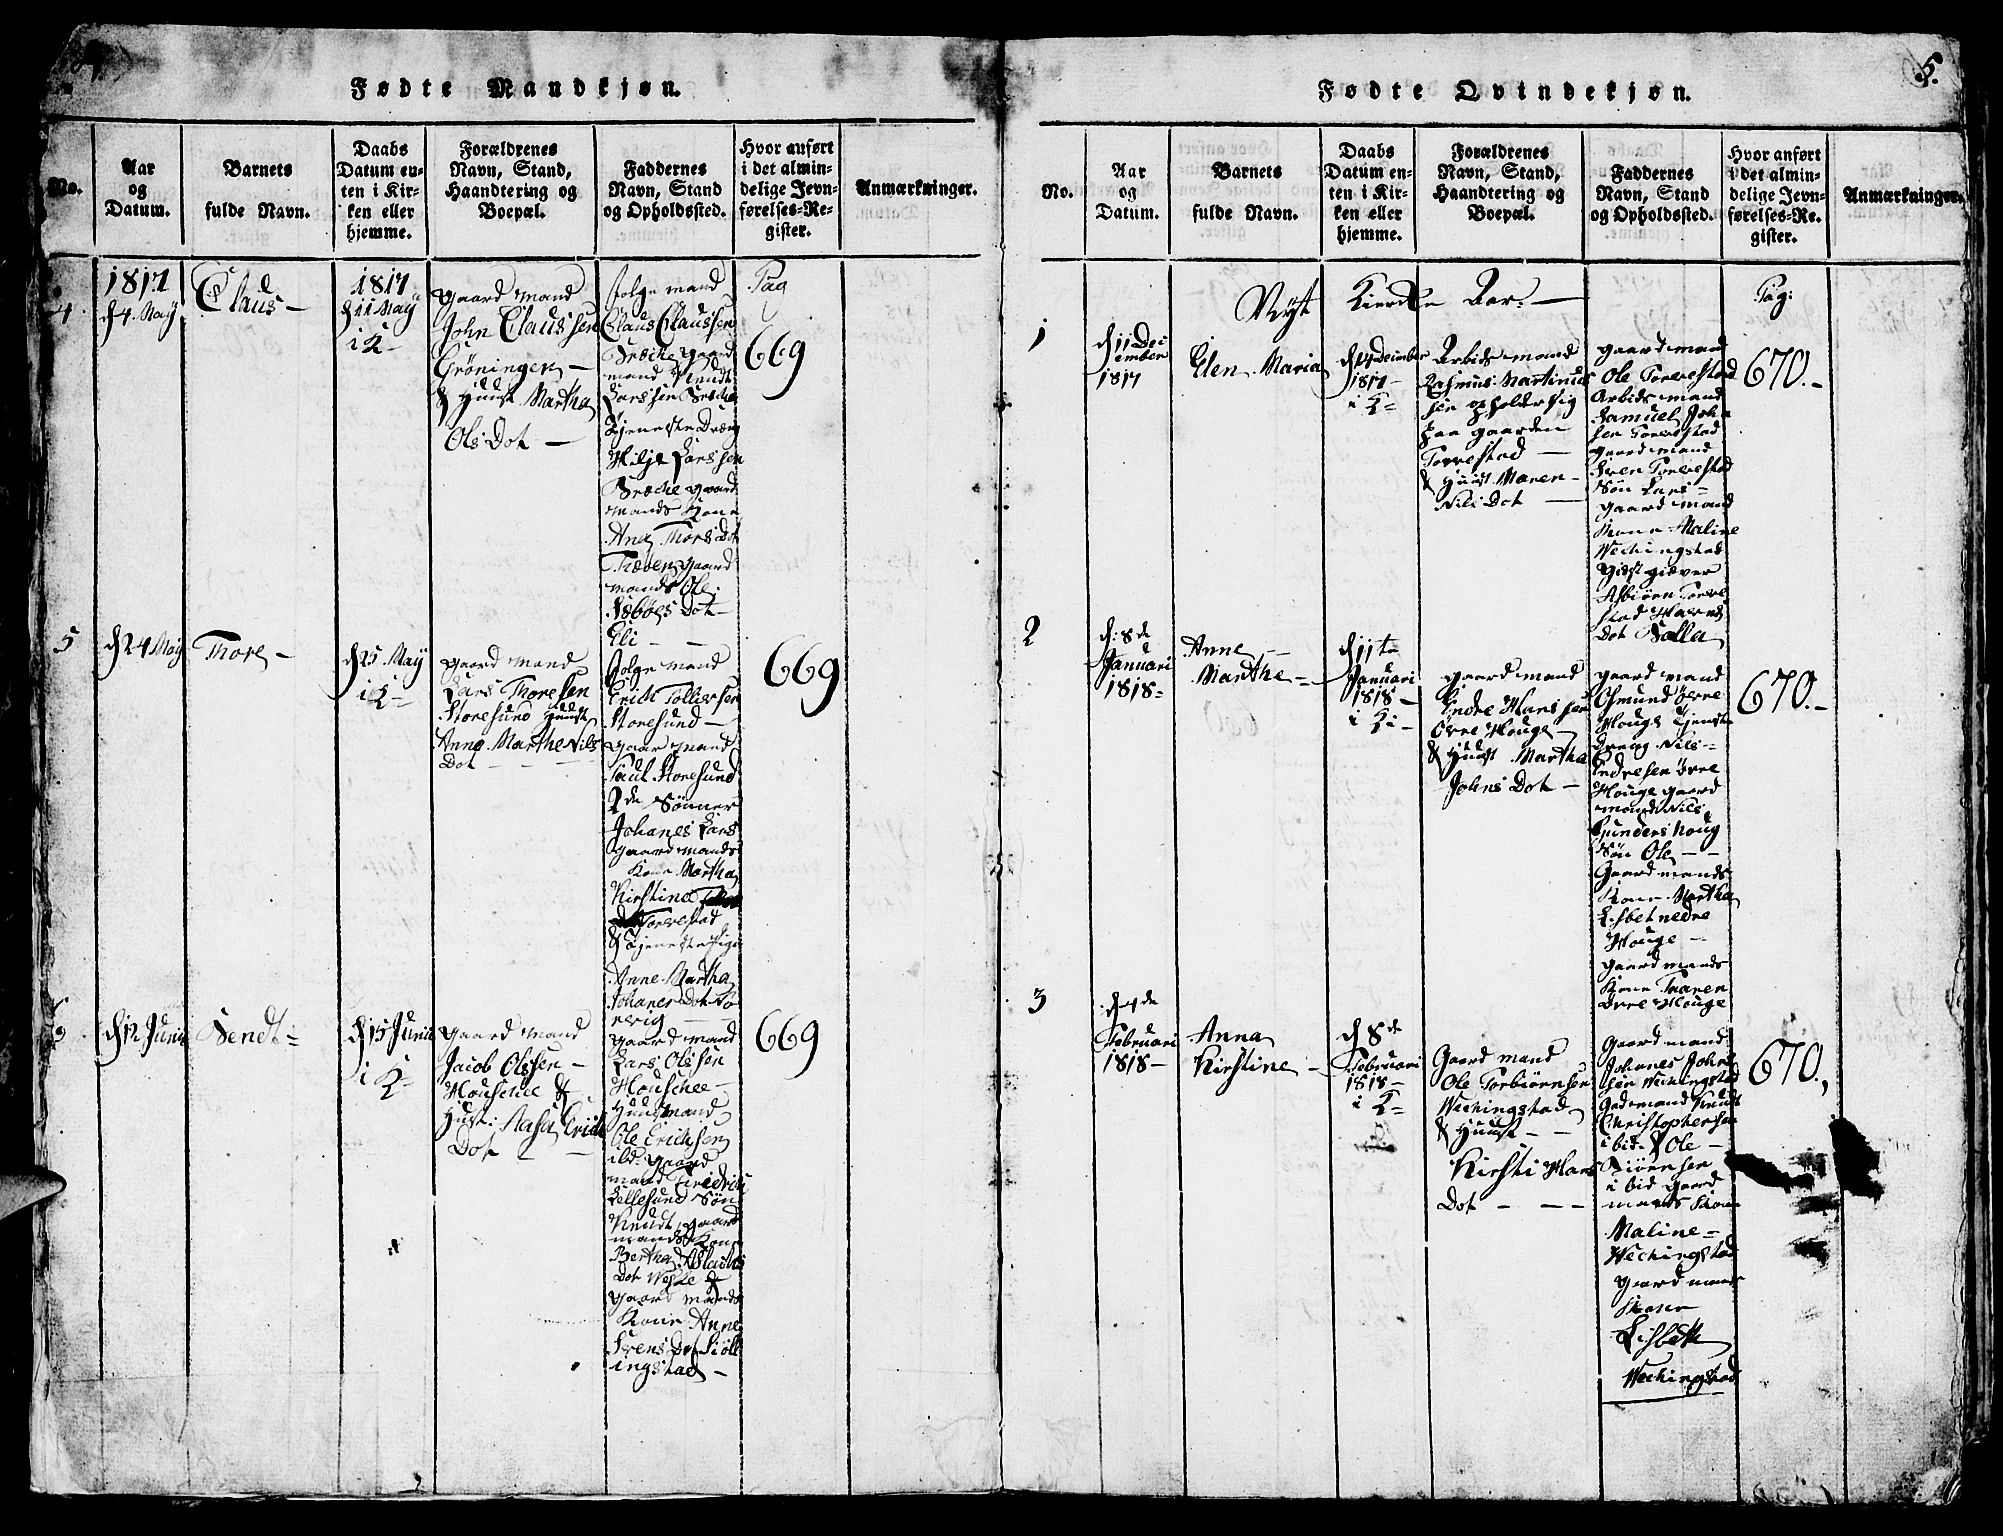 4.
Fødte Mandkjøn.
No.
Aar
og
Datum.
Barnets
fulde Navn.
Daabs
Datum en-
ten i Kir-
ken eller
hjemme.
Forældrenes
Navn, Stand,
Haandtering og
Boepæl.
Faddernes
Navn, Stand
og Opholdssted.
Hvor anført
i det almin-
delige Jevn-
førelses-Re-
gister.
Anmærkninger.
4
1817
d 4 May
Claus -
1817
d 11 May
i K -
gaard mand
John Claussen
Grøningen -
& Huust Martha
Ols Dot -
folge mand
Claus Claussen
gaard
mand Knudt
Larssen
Tjeneste Dræng
Larssen
gaard
mands Kone
Ana Thors Dot
gaard
mands Ole
Dot
Eli - -
Pag
669
5
d 24 May
Thore -
d 25 May
i K -
gaard mand
Lars Thoresen
Storesund Huust
Anne Marthe Nils
Dot - - -
folge mand
Erich Tollevsen
Storesund -
gaar mand
Paul Storesund
2de Sønner
Johanes Lars
gaard mands
Kone Martha
Kirstine
Torvestad
& Tjeneste Pige
Anne Martha
Johanes Dot
669
6
d 12 Junii
Sendt =
d 15 Junii
i K =
gaard mand
Jacob Olssen -
Houschee &
Hust: Aasa Erichs
Dot - -
gaard mand
Lars Olssen
Houschee -
Huusmand
Ole Erichsen
ibd gaard
mand
Søn
Knudt gaard
mands Kone
Bertha Aslachs
Dot &
gaard mands
Kone Anne
Svens Dot
ingstad -
669
5.
Fødte Qvindekjøn.
No.
Aar
og
Datum.
Barnets
fulde Navn.
Daabs
Datum en-
ten i Kir-
ken eller
hjemme.
Forældrenes
Navn, Stand,
Haandtering og
Boepæl.
Faddernes
Navn, Stand
og Opholdssted.
Hvor anført
i det almin-
delige Jevn-
førelses-Re-
gister.
Anmærkninger.
Nyt Kierke Aar. -
Pag:
1
d 11 Dec
ember
1817
Elen Maria
d 14 December
1817 -
i K =
Arbids mand
Rasmus Martinus
sen opholder sig
paa gaarden
Torvestad -
& Huust Maren -
Nils Dot -
gaard mand
Ole Torvestad
Arbids mand
Samuel John
sen Torvestad
gaard mand
Sven Torvestad
Søn Lars -
gaard mand
Kone Maline
Wechingstad
giest giever
Asbiørn Torve
stad
Dot
670. -
2
d. 8de
Januari
1818 =
Anne -
Marthe -
d 11te
Januari
1818 -
i K -
gaard mand
Endre Hanssen
Øvre Houge
& Huust Martha
Johns Dot -
gaard mand
Osmund Øvre
Houge Tjeneste
dreng Nils =
Endresen Øvre
Houge gaard
mand Nils
Gunders houg
Søn Ole - -
Gaard mands
Kone Martha
Lisbet nedre
Houge -
gaard mands
Kone Taaren
Øvre Houge
670. -
3
Februari
1818 -
Anna
Kirstine -
d 8de
Februari
1818 -
i K =
Gaard mand
Ole Torbiørnsen
Wechingstad
& Huust - -
Kirsti Hans
Dot - - -
gaard mand
Johanes Johne
sen Wechingstad
Gaardmand Knudt
Christophersen
ibid & Ole -
Biørnsen
ibid gaard
mands Kone
Maline =
Wechingstad
gaard mands
Kone
Lisbeth
Wechingstad
670.,